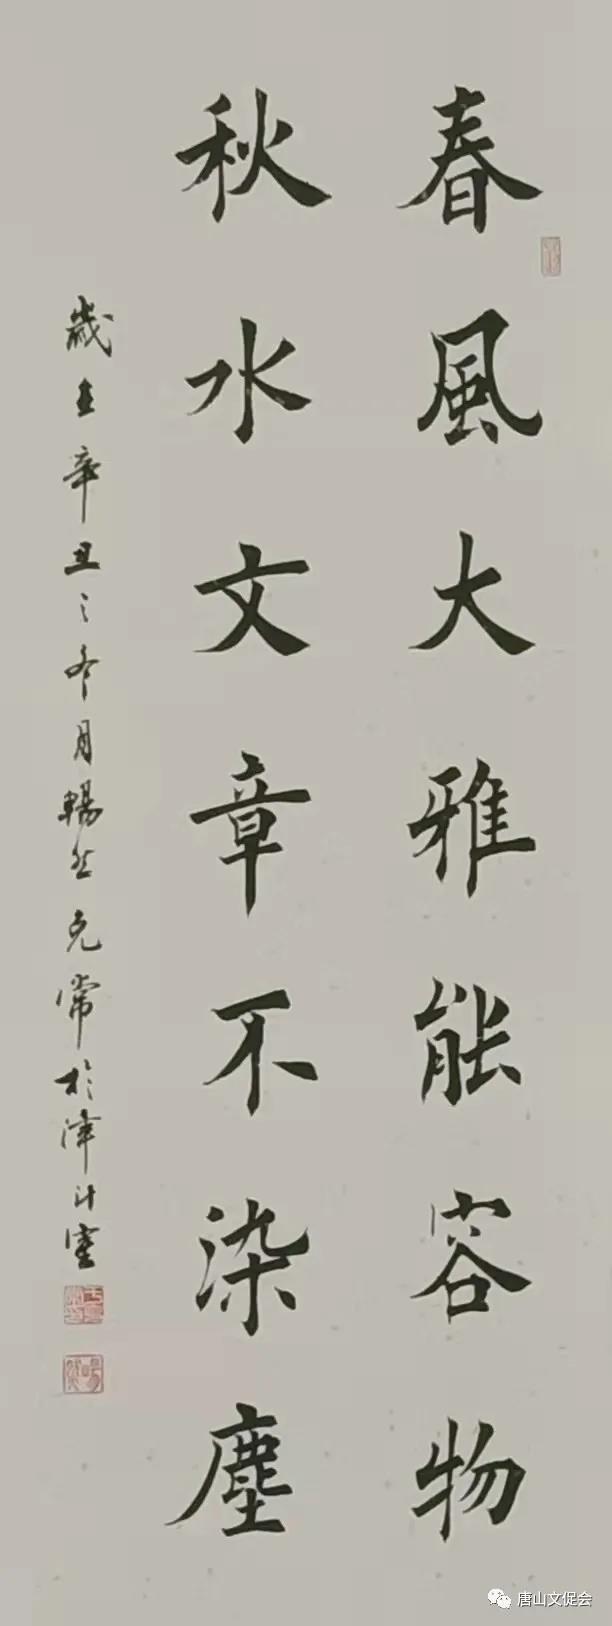 春風大雅能容物
秋水文章不染塵
歲在辛丑之冬月暢然克常於津沽寓
唐山文促会